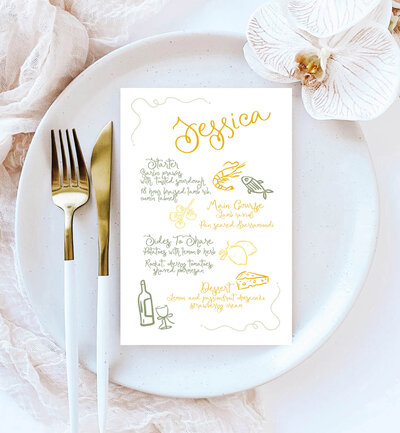 Jessica
Starter
Garlic prawns
with toasted sourdough
18 hour braised lamb
Main Course
Lamb
Pan seared Barramundi
Sides To Share
Potatoes with lemon & herb
Rocket, cherry tomatoes,
shaved parmesan
Dessert
Lemon and passionfruit cheesecake
strawberry